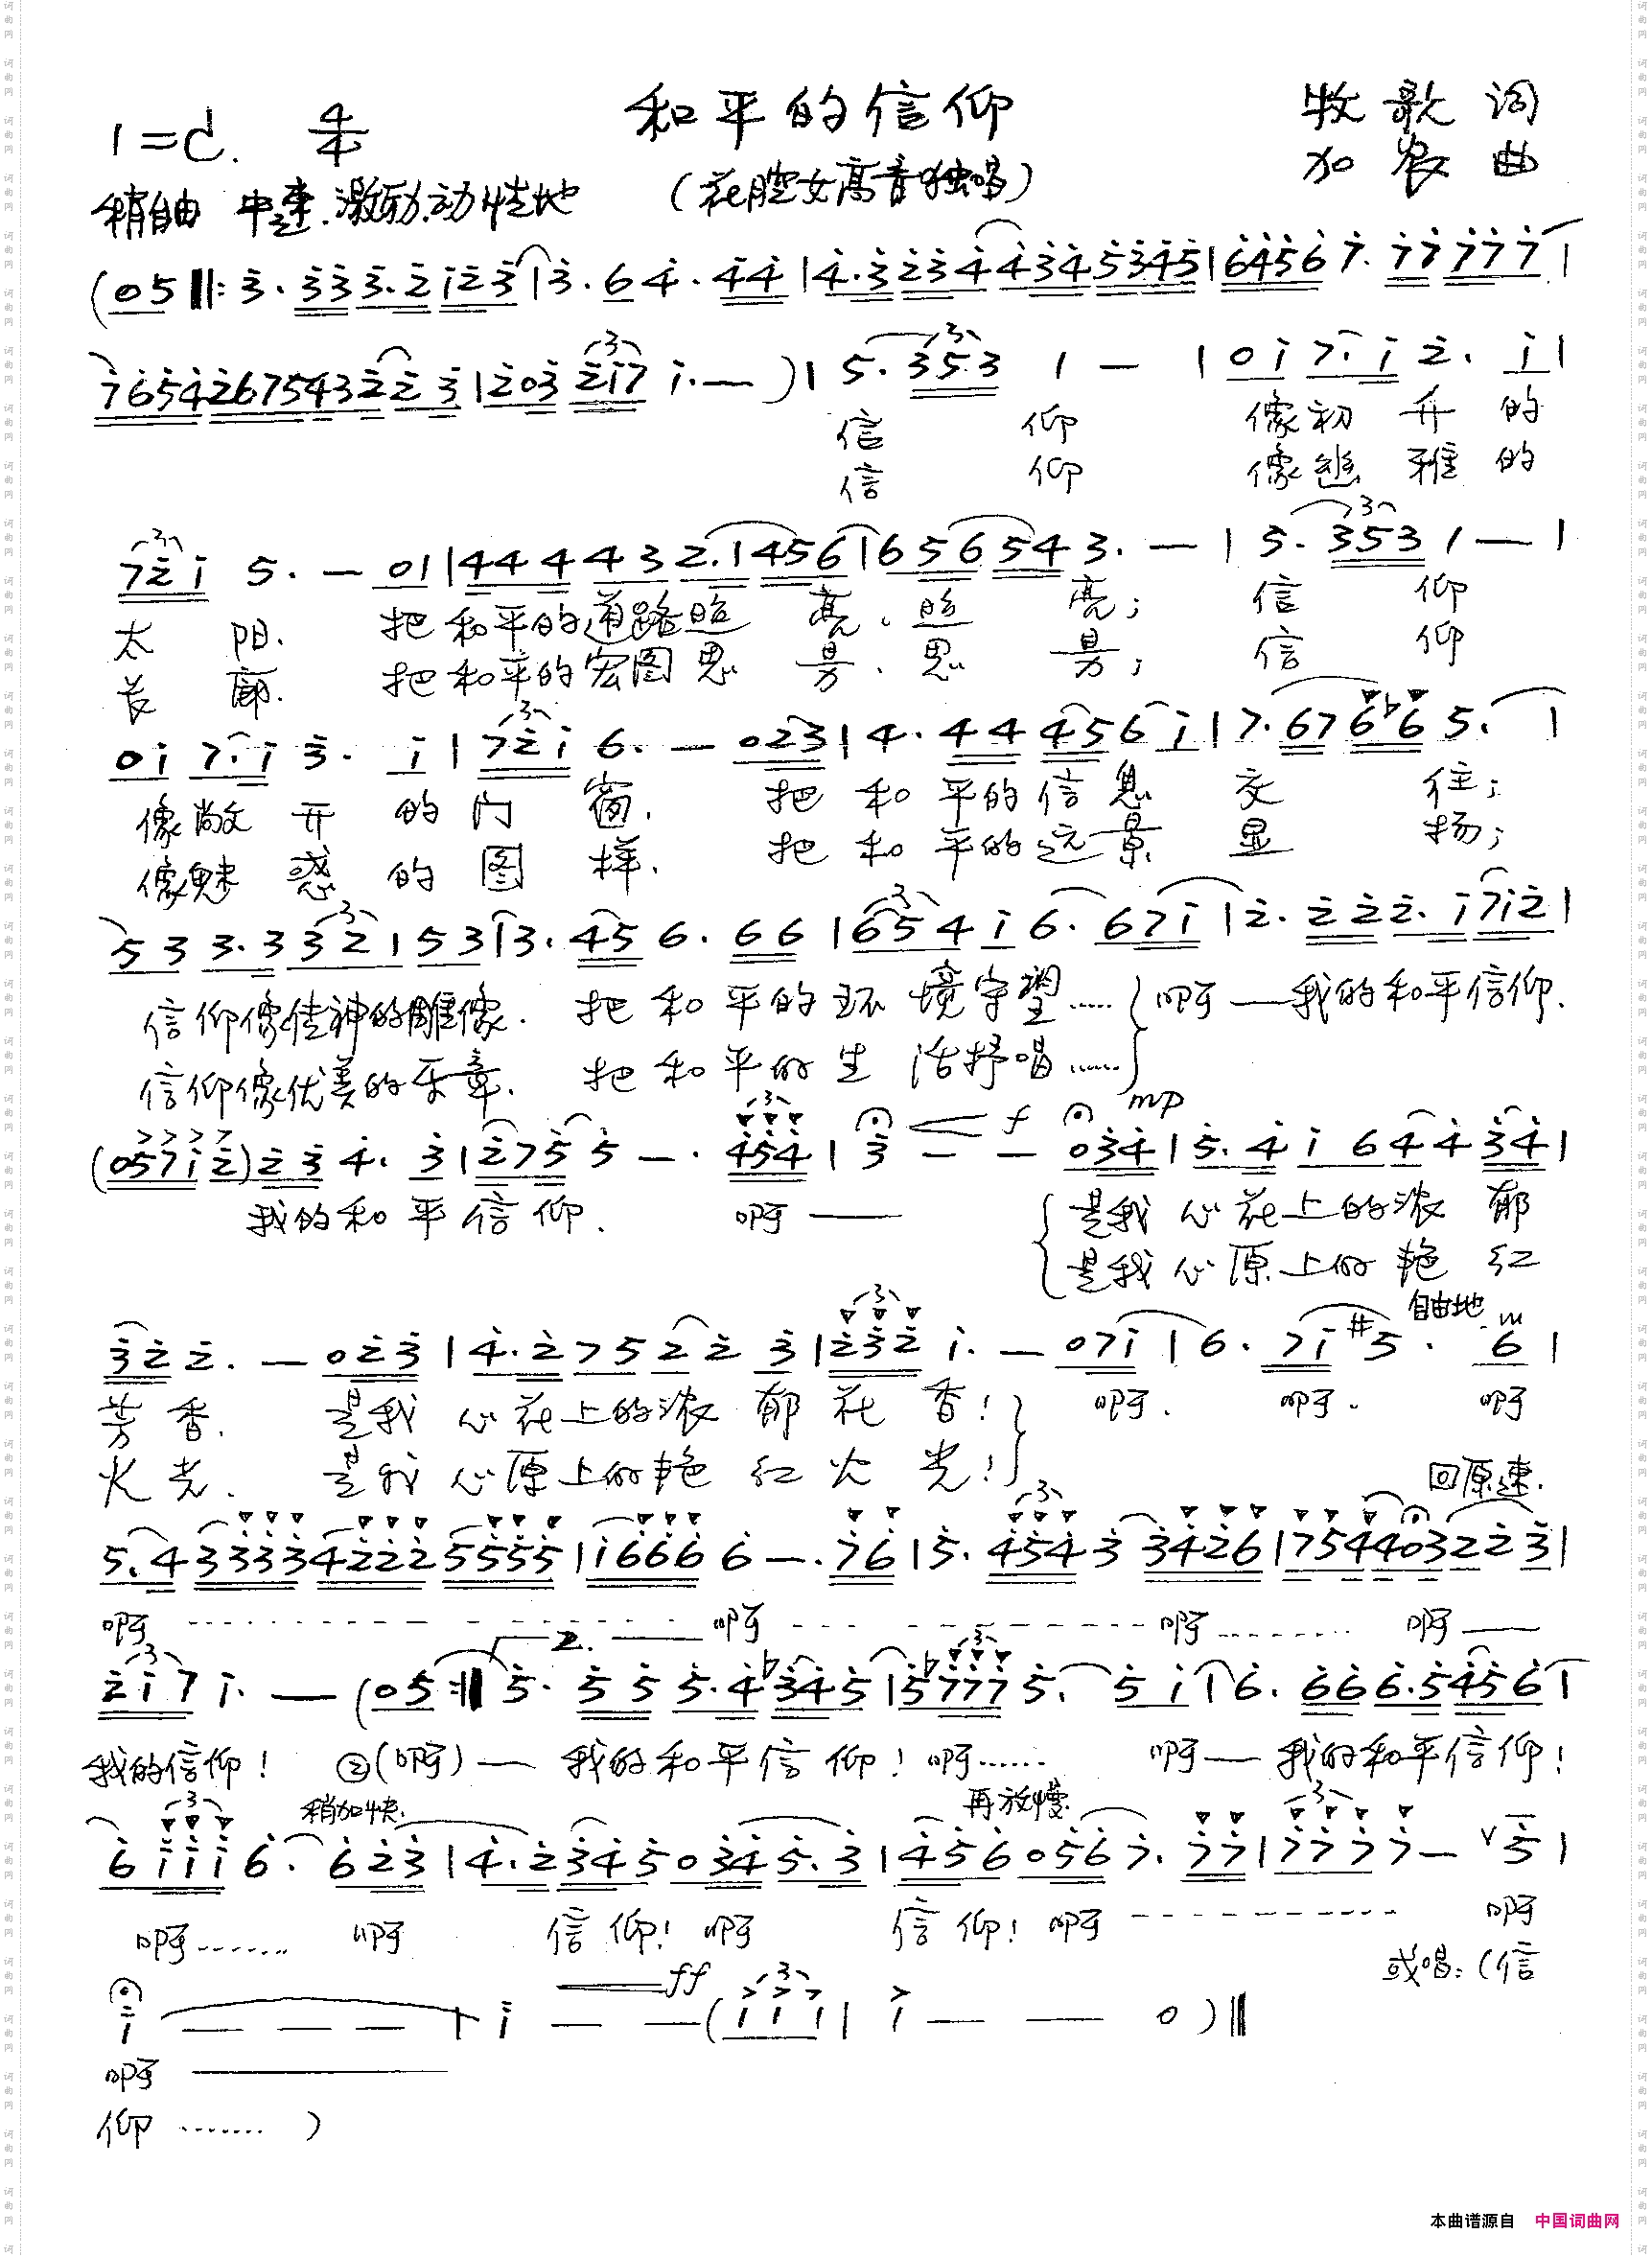 和平的信仰
牧歌 词
1=C. 4/4
(花腔女高音独唱)
加农 曲
稍自由 中速.激励.动情地
(05 ‖: 3. 333.2123 | 3. 6 4. 44 | 4.3234 4345345 | 6456 7. 77777 |
765426754322 3 | 203 217 1. — ) | 5. 353 1 — | 01 7.1 2. 1 |
信 仰 像初 升 的
信 仰 像幽 雅 的
721 5. — 01 | 444 43 2.1456 | 656543. — | 5. 353 1 — |
太 阳. 把和平的道路照 亮、照 亮; 信 仰
长 廊. 把和平的宏图思 量、思 量; 信 仰
01 7.1 3. 1 | 721 6. — 023 | 4. 44 456 1 | 7. 67 6♭6 5. |
像敞 开 的 门 窗. 把 和 平的信息 交 往;
像魅 惑 的 图 样. 把 和 平的远景 显 扬;
53 3.332 1 53 | 3. 45 6. 66 | 654 1 6. 671 | 2. 222. 1712 |
信仰像佳神的雕像. 把 和 平 的 环 境守望……} 啊 — 我的和平信仰.
信仰像优美的乐章. 把 和 平 的 生 活抒唱……
mp
(05712) 23 4. 3 | 275 5 — . 454 | 3 — f — 034 | 5. 4 1 64 4 34 |
我的和 平 信 仰. 啊 — {是我 心 花上的浓 郁
是我 心 原上的艳 红
自由地
322. — 023 | 4.2752 2 3 | 232 1. — 071 | 6. 71 #5 . 6 |
芳 香. 是我 心 花上的浓 郁 花 香!} 啊. 啊. 啊
火 光、 是我 心 原上的艳 红 火 光!
回原速.
5.4 3333 4222 5555 | 1666 6 — . 76 | 5. 454 3 3426 | 754403 22 3 |
啊 - - - - 啊 - - - - 啊…… 啊 —
2.
217 1. — (05 :‖ 5. 555.4♭345 | 5♭777 5. 5 1 | 6. 666.5456 |
我的信仰! ②(啊) — 我的和平信 仰! 啊…… 啊 — 我的和平信仰!
稍加快. 再放慢.
6111 6. 623 | 4.2345 0345.3 | 456 056 7. 77 | 7777 — ∨ 5 |
啊…… 啊 信 仰! 啊 信 仰! 啊 - - - - 啊
或唱:(信
ff
1 — — — | 1 — — — (111 | 1 — — 0 ) ‖
啊 —
仰 …… )
本曲谱源自 中国词曲网